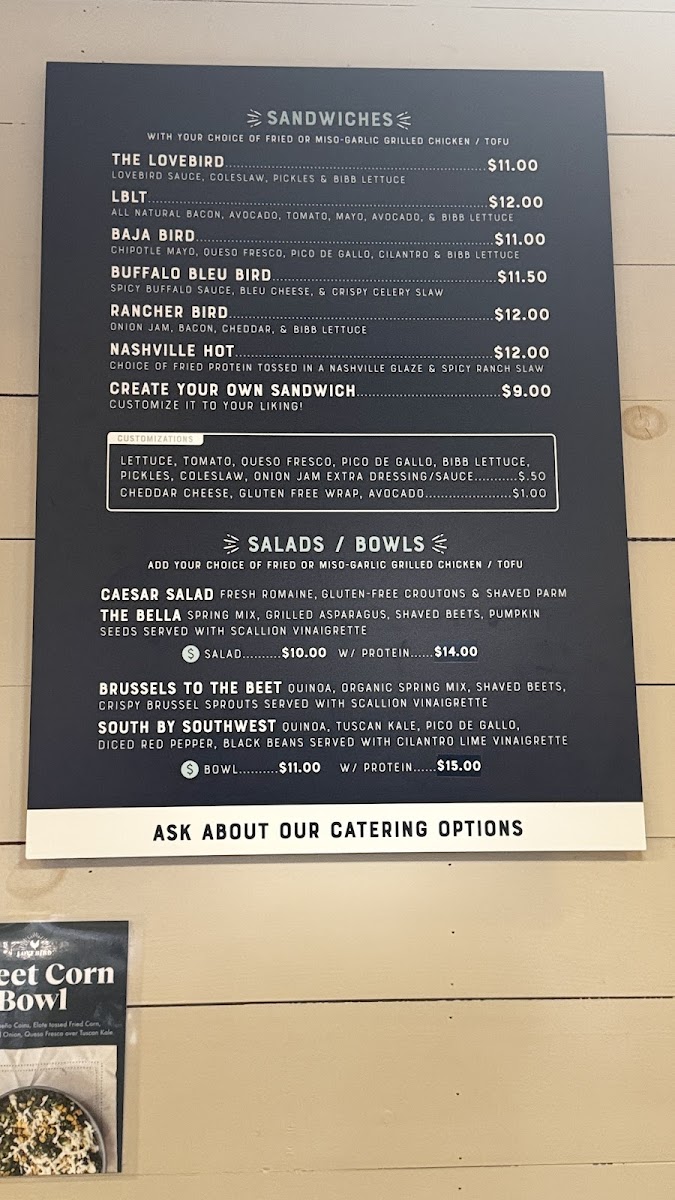 SANDWICHES
WITH YOUR CHOICE OF FRIED OR MISO-GARLIC GRILLED CHICKEN / TOFU
THE LOVEBIRD........................................................$11.00
LOVEBIRD SAUCE, COLESLAW, PICKLES & BIBB LETTUCE
LBLT........................................................................$12.00
ALL NATURAL BACON, AVOCADO, TOMATO, MAYO, AVOCADO, & BIBB LETTUCE
BAJA BIRD...............................................................$11.00
CHIPOTLE MAYO, QUESO FRESCO, PICO DE GALLO, CILANTRO & BIBB LETTUCE
BUFFALO BLEU BIRD...............................................$11.50
SPICY BUFFALO SAUCE, BLEU CHEESE, & CRISPY CELERY SLAW
RANCHER BIRD........................................................$12.00
ONION JAM, BACON, CHEDDAR, & BIBB LETTUCE
NASHVILLE HOT.......................................................$12.00
CHOICE OF FRIED PROTEIN TOSSED IN A NASHVILLE GLAZE & SPICY RANCH SLAW
CREATE YOUR OWN SANDWICH..............................$9.00
CUSTOMIZE IT TO YOUR LIKING!
CUSTOMIZATIONS
LETTUCE, TOMATO, QUESO FRESCO, PICO DE GALLO, BIBB LETTUCE,
PICKLES, COLESLAW, ONION JAM EXTRA DRESSING/SAUCE...........$.50
CHEDDAR CHEESE, GLUTEN FREE WRAP, AVOCADO......................$1.00
SALADS / BOWLS
ADD YOUR CHOICE OF FRIED OR MISO-GARLIC GRILLED CHICKEN / TOFU
CAESAR SALAD FRESH ROMAINE, GLUTEN-FREE CROUTONS & SHAVED PARM
THE BELLA SPRING MIX, GRILLED ASPARAGUS, SHAVED BEETS, PUMPKIN
SEEDS SERVED WITH SCALLION VINAIGRETTE
$ SALAD.........$10.00 W/ PROTEIN......$14.00
BRUSSELS TO THE BEET QUINOA, ORGANIC SPRING MIX, SHAVED BEETS,
CRISPY BRUSSEL SPROUTS SERVED WITH SCALLION VINAIGRETTE
SOUTH BY SOUTHWEST QUINOA, TUSCAN KALE, PICO DE GALLO,
DICED RED PEPPER, BLACK BEANS SERVED WITH CILANTRO LIME VINAIGRETTE
$ BOWL..........$11.00 W/ PROTEIN......$15.00
ASK ABOUT OUR CATERING OPTIONS
LOVEBIRD
eet Corn
Bowl
Coins, Elote tossed Fried Corn,
Onion, Queso Fresco over Tuscan Kale